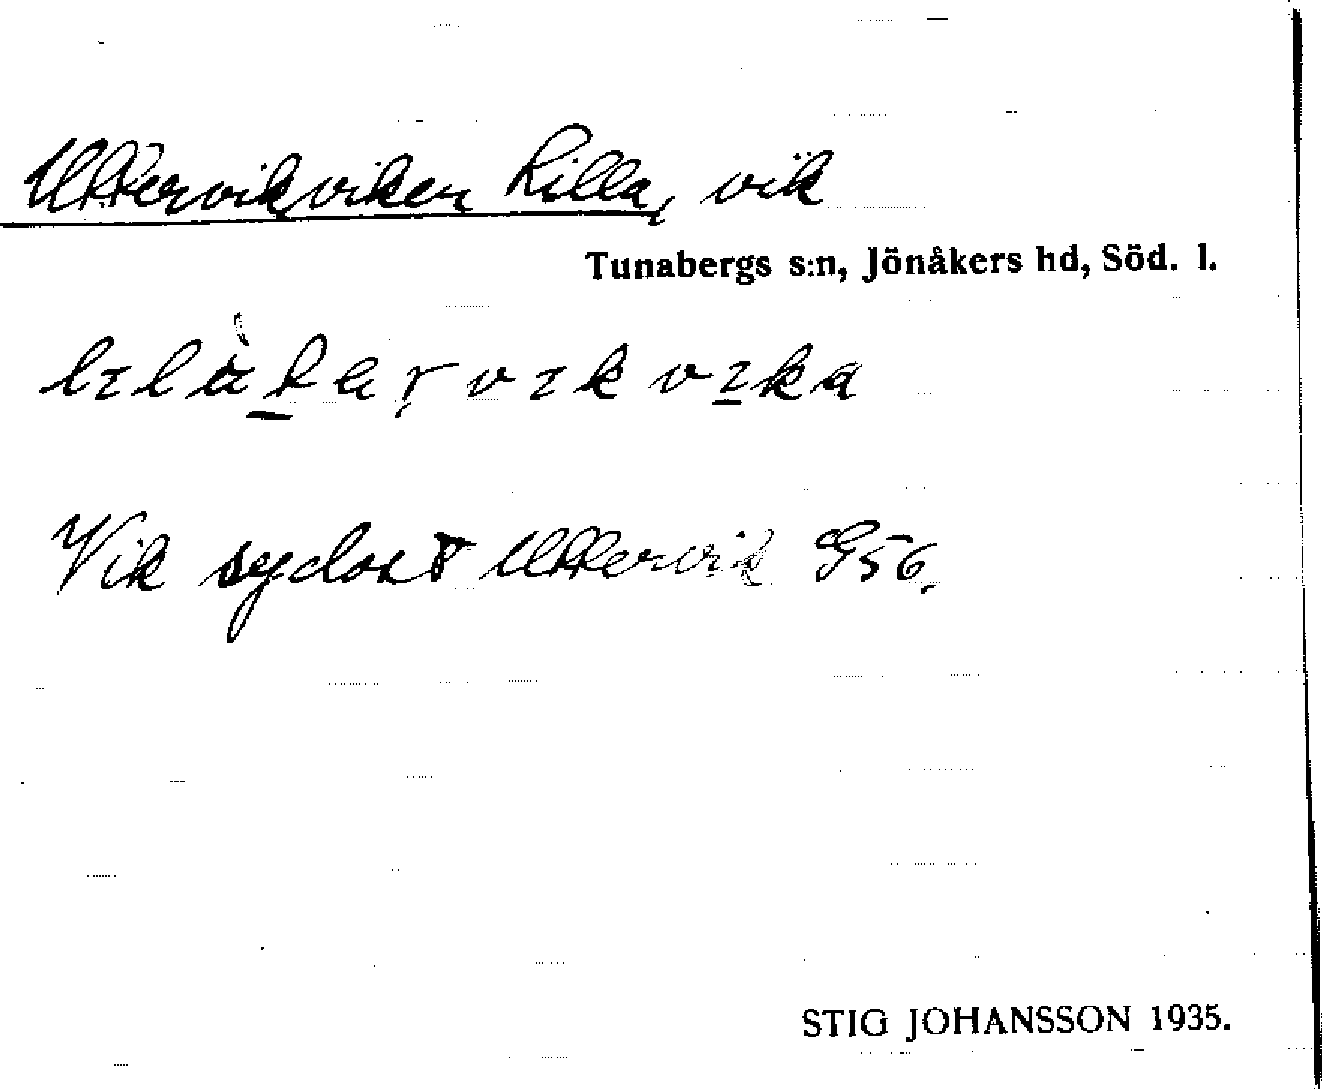 Uttervikviken Lilla, vik
Tunabergs s:n, Jönåkers hd, Söd. l.
Vik sydost Uttervik G56.
STIG JOHANSSON 1935.